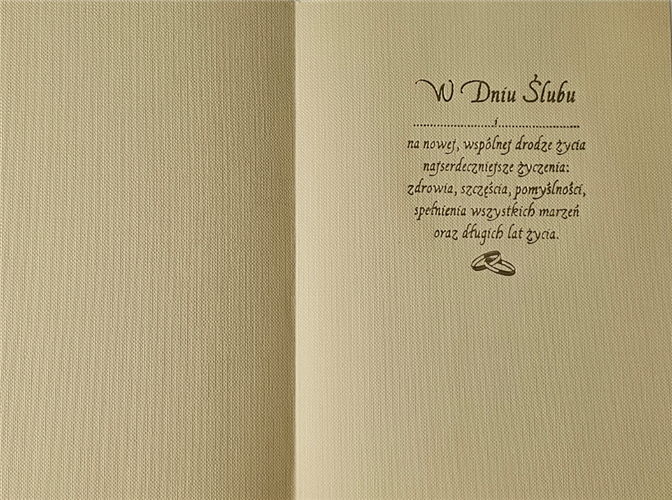 W Dniu Ślubu
........................i........................
na nowej, wspólnej drodze życia
najserdeczniejsze życzenia:
zdrowia, szczęścia, pomyślności,
spełnienia wszystkich marzeń
oraz długich lat życia.